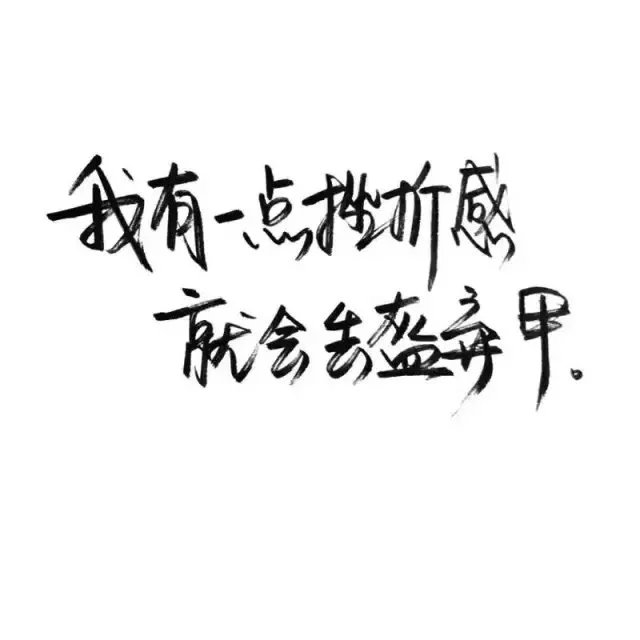 我有一点挫折感
就会丢盔弃甲。